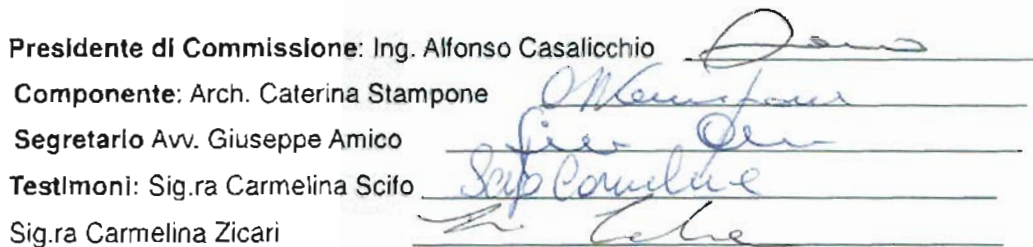 Presidente di Commissione: Ing. Alfonso Casalicchio
Componente: Arch. Caterina Stampone
Segretario Avv. Giuseppe Amico
Testimoni: Sig.ra Carmelina Scifo Scifo Carmelina
Sig.ra Carmelina Zicari